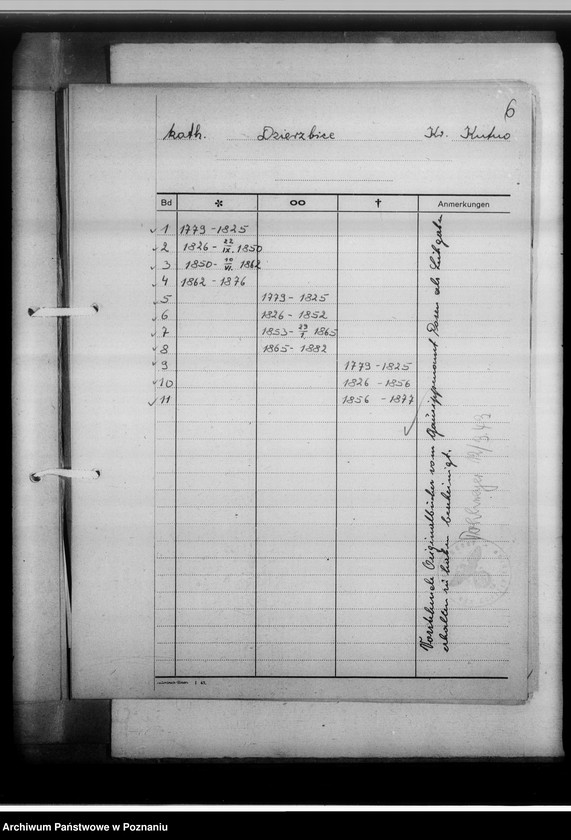 6
kath. Dzierzbice Kr. Kutno
Bd * oo † Anmerkungen
1 1779 - 1825
2 1826 - 22/IX. 1850
3 1850 - 10/VI. 1862
4 1862 - 1876
5 1779 - 1825
6 1826 - 1852
7 1853 - 29/1. 1865
8 1865 - 1882
9 1779 - 1825
10 1826 - 1856
11 1856 - 1877
Vorstehende Originalbücher vom Gausippenamt Posen als Leihgabe
erhalten zu haben bescheinigt.
12/3.43
Archiwum Państwowe w Poznaniu